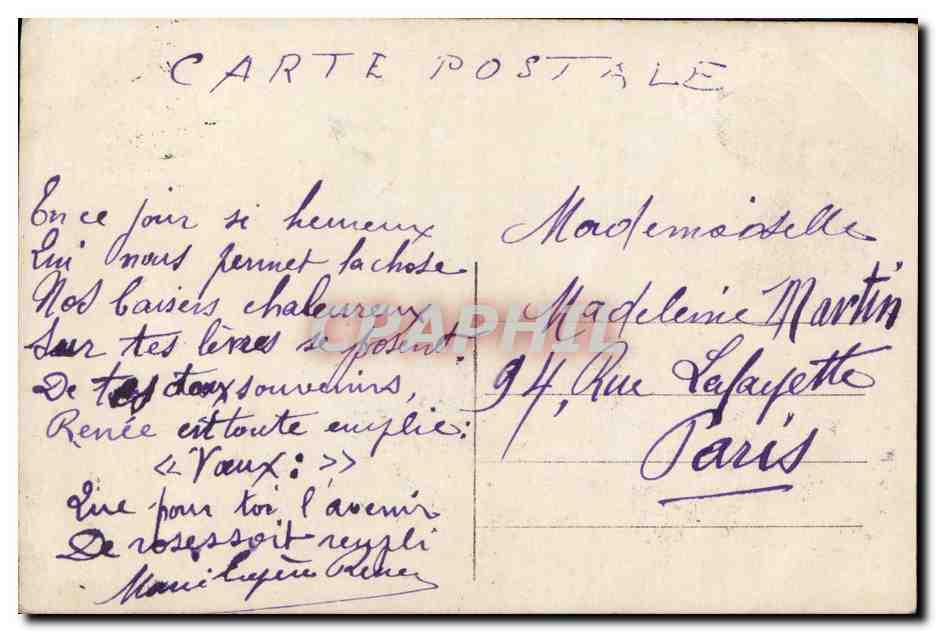 CARTE POSTALE
En ce jour si heureux
Qui nous permet la chose
Nos baisers chaleureux
Sur tes lèvres se posent.
De tes doux souvenirs,
Renée est toute emplie:
« Vœux: »
Que pour toi l'avenir
De roses soit rempli
Renée
Mademoiselle
Madeleine Martin
94, Rue Lafayette
Paris
CPAPHIL